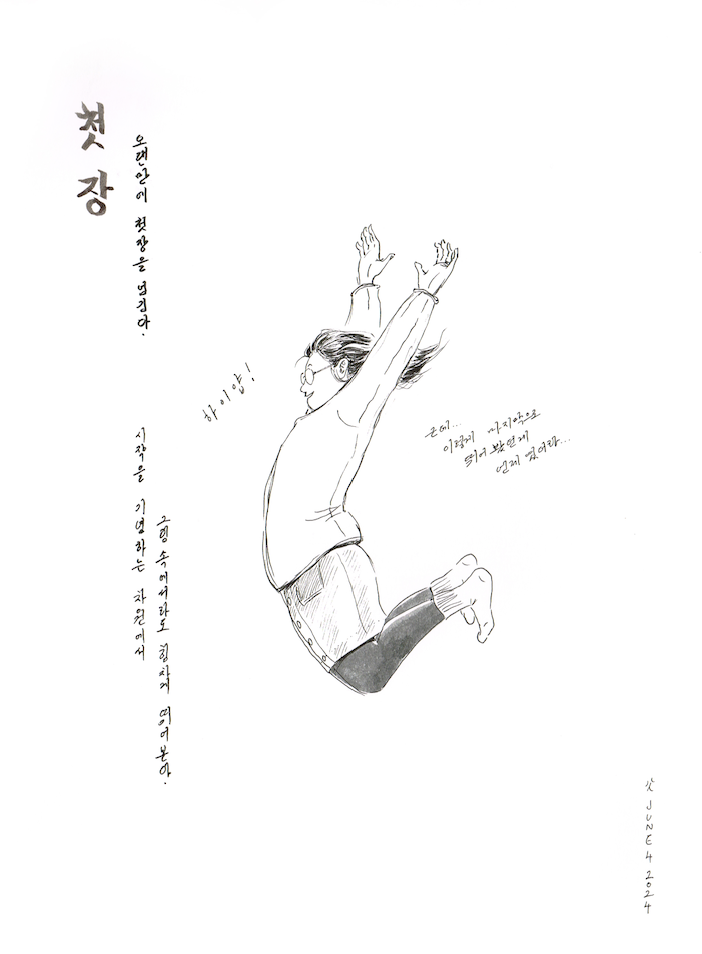 첫 장
오랜만에 첫장을 넘긴다.
시작을 기념하는 차원에서
그림 속에서라도 힘차게 뛰어본다.
하이얍!
근데...
이렇게 마지막으로
뛰어 봤던게
언제 였더라...
JUNE 4 2024